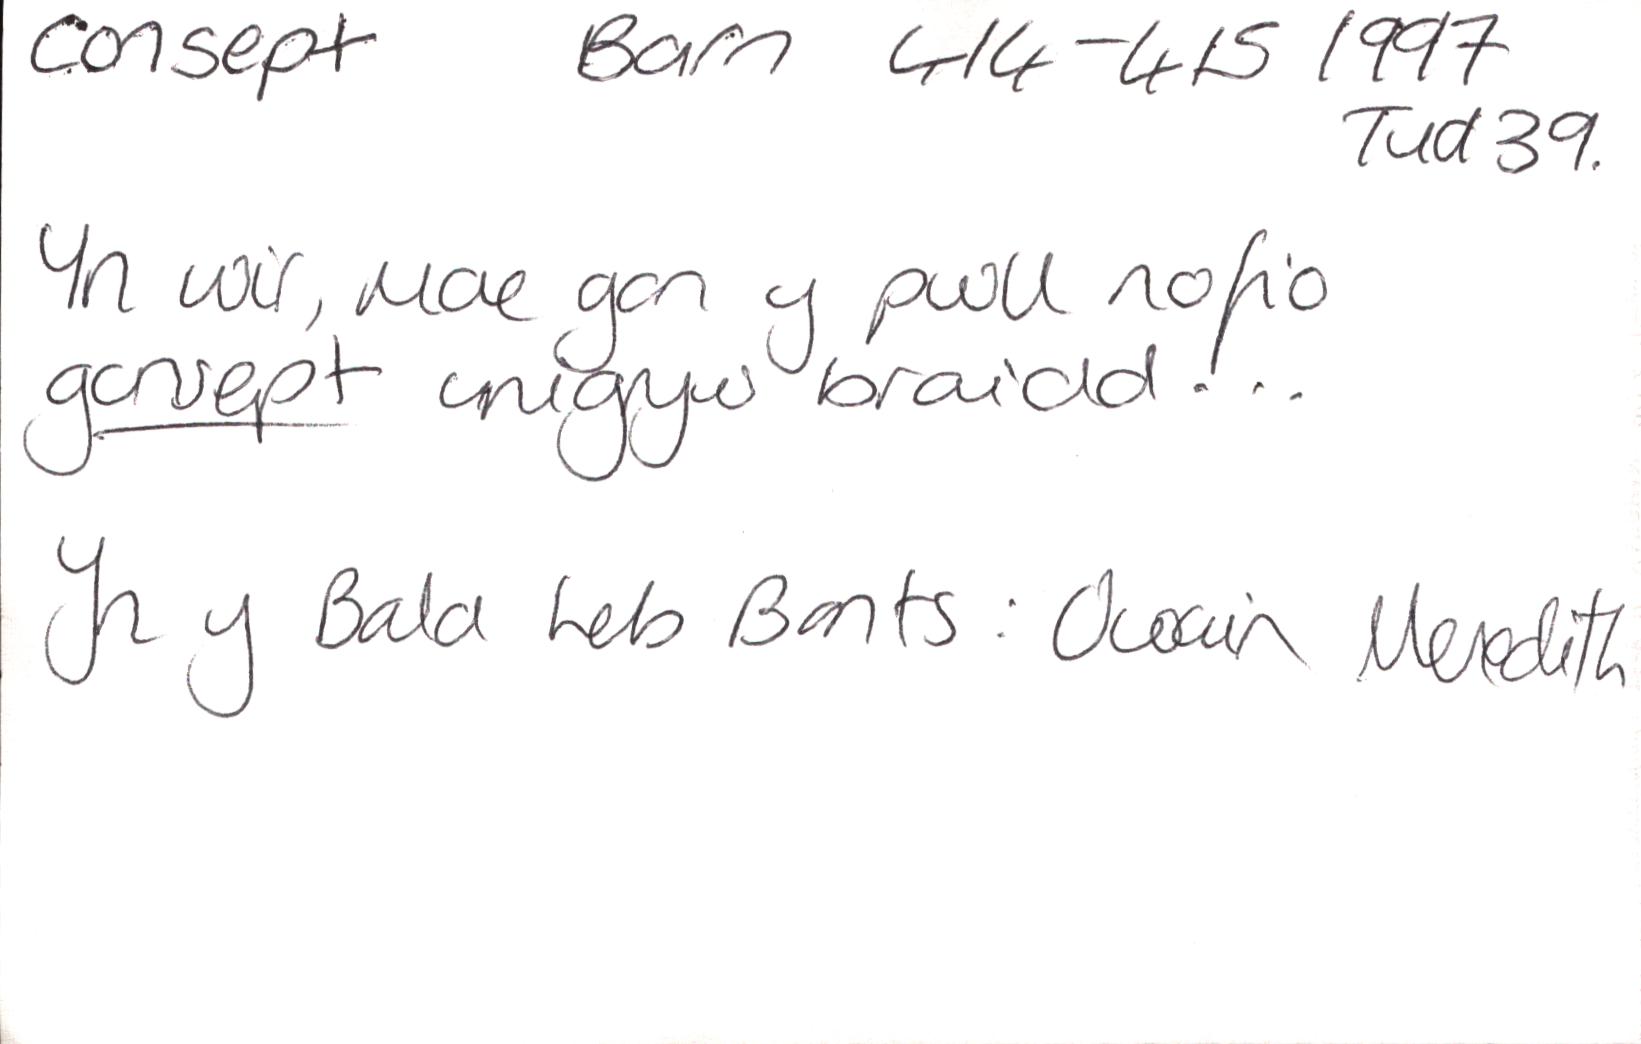 consept Barn 414-415 1997
Tud 39.
Yn wir, mae gan y pwll nofio
gonsept unigyw braidd...
Yn y Bala heb Bants: Owain Meredith